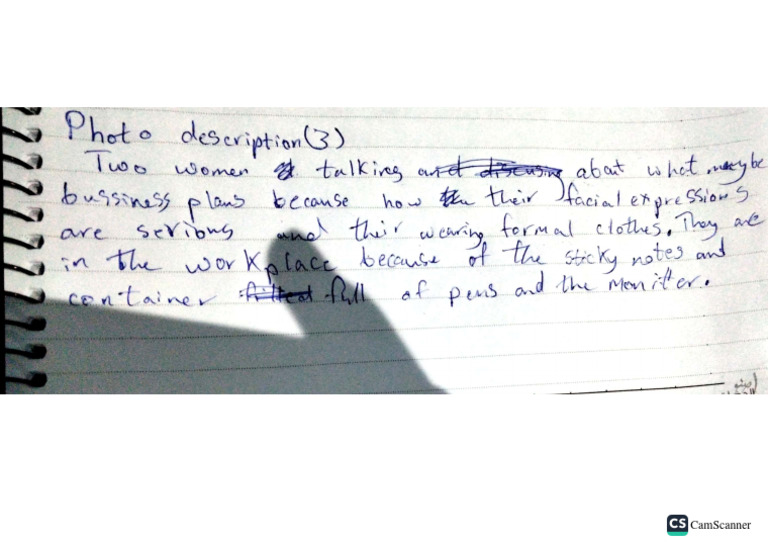 Photo description(3)
Two women talking about what maybe
bussiness plans because how their facial expressions
are serious and their wearing formal clothes. They are
in the workplace because of the sticky notes and
container full of pens and the moniter.
CS CamScanner